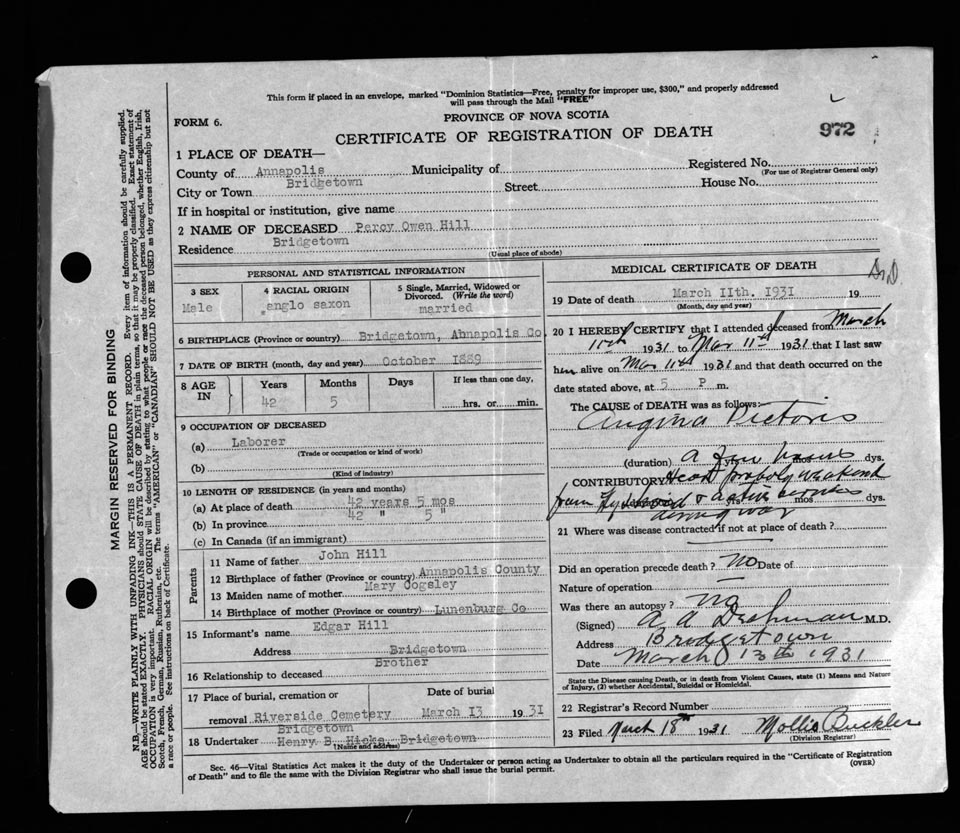 This form if placed in an envelope, marked "Dominion Statistics—Free, penalty for improper use, $300," and properly addressed
will pass through the Mail "FREE"
FORM 6.
PROVINCE OF NOVA SCOTIA
CERTIFICATE OF REGISTRATION OF DEATH
972
1 PLACE OF DEATH—
County of Annapolis Municipality of Registered No.
(For use of Registrar General only)
City or Town Bridgetown Street House No.
If in hospital or institution, give name
2 NAME OF DECEASED Percy Owen Hill
Residence Bridgetown
(Usual place of abode)
PERSONAL AND STATISTICAL INFORMATION
3 SEX
Male
4 RACIAL ORIGIN
anglo saxon
5 Single, Married, Widowed or
Divorced. (Write the word)
married
6 BIRTHPLACE (Province or country) Bridgetown, Abnapolis Co
7 DATE OF BIRTH (month, day and year) October 1889
8 AGE IN
Years Months Days If less than one day,
42 5 hrs. or min.
9 OCCUPATION OF DECEASED
(a) Laborer
(Trade or occupation or kind of work)
(b)
(Kind of industry)
10 LENGTH OF RESIDENCE (in years and months)
(a) At place of death 42 years 5 mos
(b) In province 42 " 5 "
(c) In Canada (if an immigrant)
Parents
11 Name of father John Hill
12 Birthplace of father (Province or country) Annapolis County
13 Maiden name of mother Mary Cogsley
14 Birthplace of mother (Province or country) Lunenburg Co
15 Informant's name Edgar Hill
Address Bridgetown
16 Relationship to deceased Brother
17 Place of burial, cremation or Date of burial
removal Riverside Cemetery March 13 1931
Bridgetown
18 Undertaker Henry B. Hicks, Bridgetown
(Name and address)
MEDICAL CERTIFICATE OF DEATH
19 Date of death March 11th. 1931 19
(Month, day and year)
20 I HEREBY CERTIFY that I attended deceased from March
1931 to Mar 11th 1931 that I last saw
him alive on Mar 11th 1931 and that death occurred on the
date stated above, at 5 P m.
The CAUSE of DEATH was as follows:—
Angina Pectoris
(duration) a few hours yrs. mos dys.
CONTRIBUTORY Heart probably weakened
from & active service yrs mos dys.
during war
21 Where was disease contracted if not at place of death?
Did an operation precede death? No Date of
Nature of operation
Was there an autopsy? No
(Signed) A A M.D.
Address Bridgetown
Date March 13th 1931
State the Disease causing Death, or in death from Violent Causes, state (1) Means and Nature
of Injury, (2) whether Accidental, Suicidal or Homicidal.
22 Registrar's Record Number
23 Filed March 18th 1931 Mollie Buckler
(Division Registrar)
Sec. 46—Vital Statistics Act makes it the duty of the Undertaker or person acting as Undertaker to obtain all the particulars required in the "Certificate of Registration
of Death" and to file the same with the Division Registrar who shall issue the burial permit.
(OVER)
MARGIN RESERVED FOR BINDING
N.B.—WRITE PLAINLY WITH UNFADING INK—THIS IS A PERMANENT RECORD. Every item of information should be carefully supplied.
AGE should be stated EXACTLY. PHYSICIANS should STATE CAUSE OF DEATH in plain terms, so that it may be properly classified. Exact statement of
OCCUPATION is very important. RACIAL ORIGIN will be described by stating to what people or race the deceased person belonged, whether English, Irish,
Scotch, French, German, Russian, Ruthenian, etc. The terms "AMERICAN" or "CANADIAN" SHOULD NOT BE USED as they express citizenship but not
a race or people. See instructions on back of Certificate.